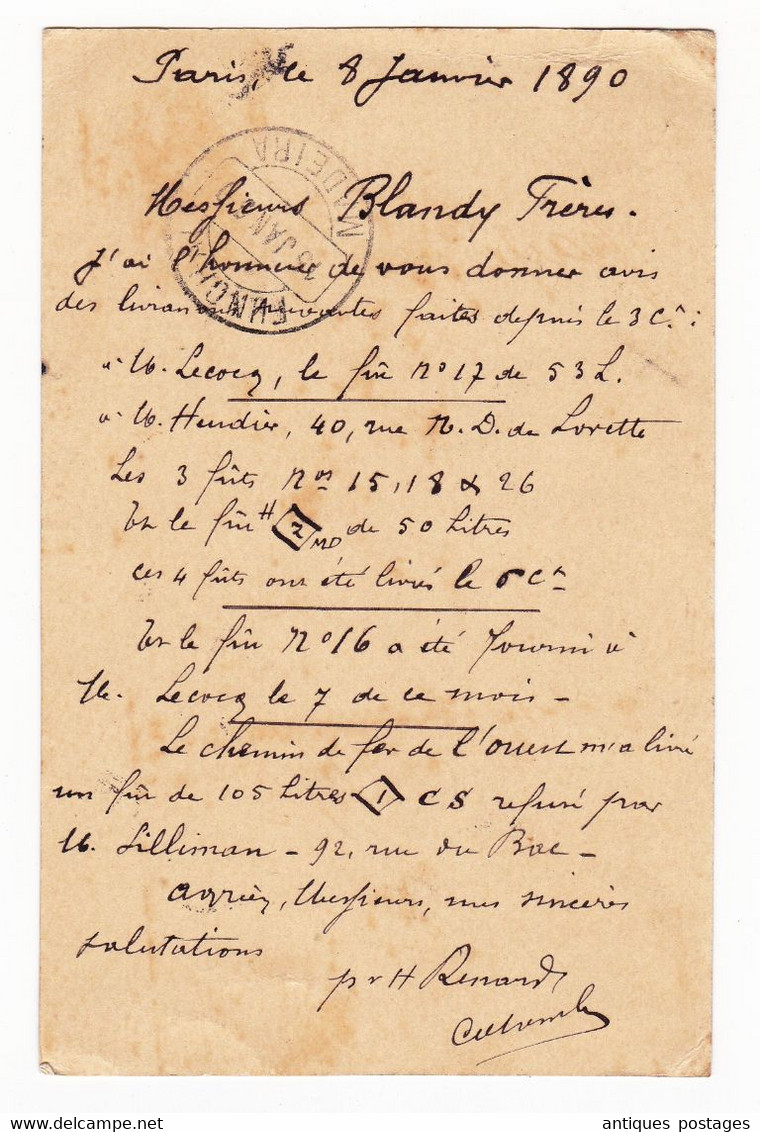 Paris, le 8 Janvier 1890
Messieurs Blandy Frères.
J'ai l'honneur de vous donner avis
des livraisons suivantes faites depuis le 3 Ct :
à M. Lecocq, le fût No 17 de 53 L.
à M. Heudier, 40, rue N. D. de Lorette
Les 3 fûts Nos 15, 18 & 26
Et le fût H 2 MD de 50 Litres
ces 4 fûts ont été livrés le 6 Ct
Et le fût No 16 a été fourni à
M. Lecocq le 7 de ce mois -
Le chemin de fer de l'ouest m'a livré
un fût de 105 Litres 1 CS refusé par
M. Silliman - 92, rue du Bac -
agréez, Messieurs, mes sincères
salutations
pr H Renard
FUNCHAL
15 JAN
MADEIRA
www.delcampe.net
antiques postages